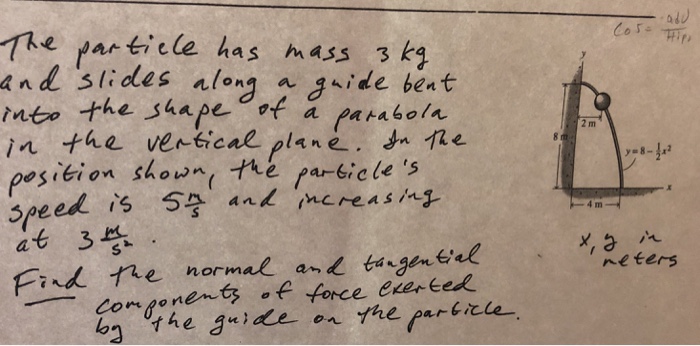 Cos = adj
Hip,
The particle has mass 3 kg
and slides along a guide bent
into the shape of a parabola
in the vertical plane. In the
position shown, the particle's
speed is 5 m/s and increasing
at 3 m/s².
Find the normal and tangential
components of force exerted
by the guide on the particle.
y
2 m
8 m
y = 8 - ½x²
x
4 m
x, y in
meters